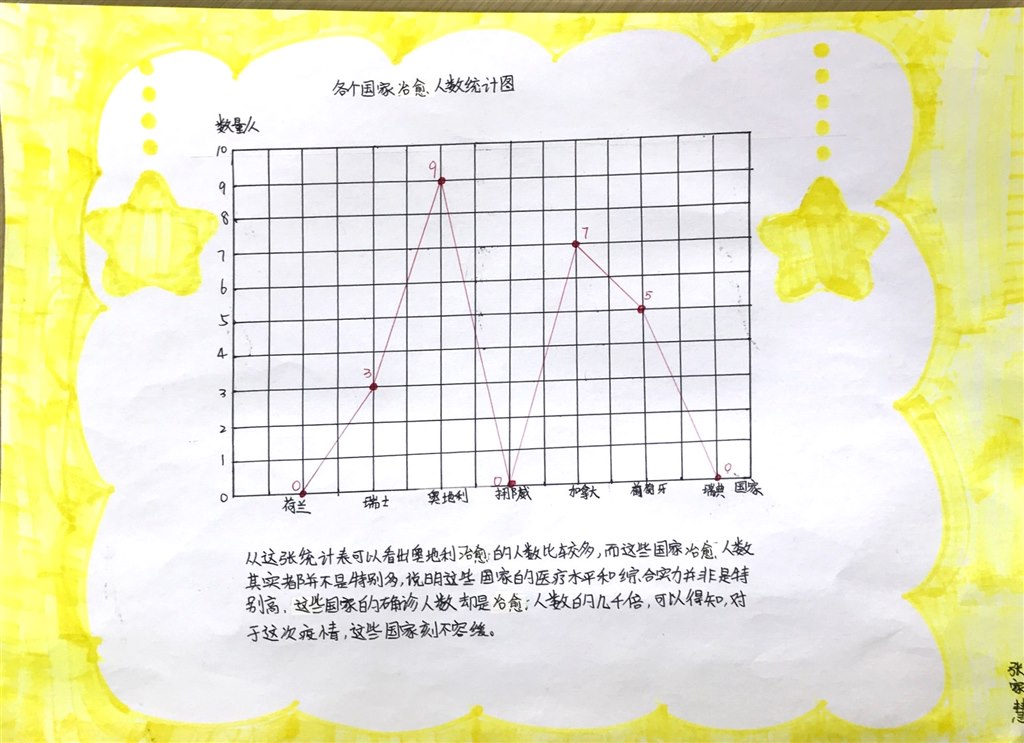 各个国家治愈人数统计图
数量/人
10
9
8
7
6
5
4
3
2
1
0
0
3
9
0
7
5
0
荷兰 瑞士 奥地利 挪威 加拿大 葡萄牙 瑞典 国家
从这张统计表可以看出奥地利治愈的人数比较多,而这些国家治愈人数
其实都并不是特别多,说明这些国家的医疗水平和综合实力并非是特
别高,这些国家的确诊人数却是治愈人数的几千倍,可以得知,对
于这次疫情,这些国家刻不容缓。
张家慧